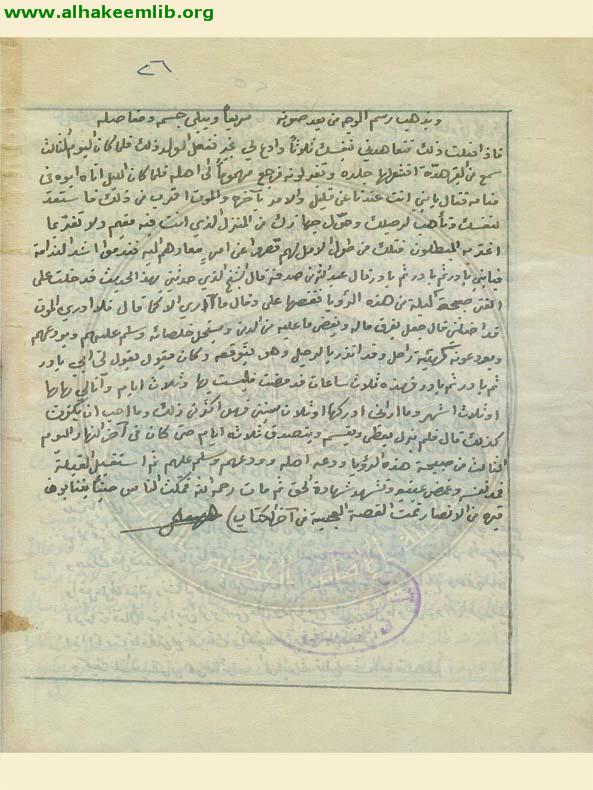 www.alhakeemlib.org
٢٦
ويذهب رسم الوجه من بعد صونه سريعاً ويبلى جسمه ومفاصله
فاذا فعلت ذلك فتعاهدني بنفسك ثلاثاً وادع لي ففعل الولد ذلك فلما كان اليوم الثالث
سمع من القبر هدة اقشعر لها جلده وتغير لونه فرجع مهموماً الى اهله فلما كان الليل اتاه ابوه في
منامه فقال يا بني انت عندنا عن قليل والامر بآخره والموت اقرب من ذلك فاستعد
لسفرك وتأهب لرحيلك وحول جهازك من المنزل الذي انت فيه مقيم ولا تغتر بما
اغتر به المبطلون قبلك من طول الامل لهم فقصروا عن امر معادهم اليه فندموا اشد الندامة
فيا بني بادر ثم بادر ثم بادر قال قال الشيخ الذي حدثني بهذا الحديث فدخلت على
الفتى صبيحة ليلة من هذه الرؤيا فقصها علي وقال ما ارى الامر الا كما قال فلا ارى الموت
قد اظلني قال فجعل يفرق ماله ويقضي ما عليه من الدين ويستحل خلصائه وسلم عليهم ويودعهم
ويودعونه كهيئة راحل وقد انذر بالرحيل وهو يتوقعه وكان يقول يقول لي ابي بادر
ثم بادر ثم بادر فهذه ثلاث ساعات قد مضت فليست بها وثلاث ايام وانى لي بها
او ثلاث اشهر وما اراني ادركها او ثلاث سنين فهو اكثر من ذلك وما احب ان يكون
كذلك قال فلم يزل يعطي ويقسم ويتصدق ثلاثة ايام حتى كان في آخر النهار اليوم
الثالث من صبيحة هذه الرؤيا ودعه اهله وودعهم وسلم عليهم ثم استقبل القبلة
فمد نفسه وغمض عينيه وتشهد شهادة الحق ثم مات رحمه الله فمكث الناس حيناً ينتابون
قبره من الامصار تمت القصة العجيبة في آخر الكتاب